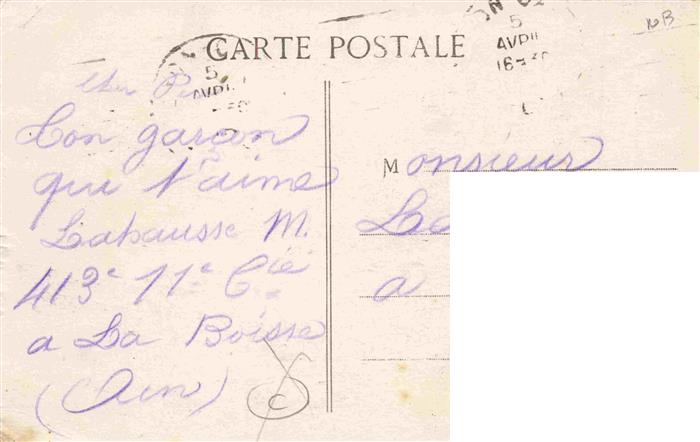 CARTE POSTALE
5
AVRIL
5
AVRIL
16
NB
Cher
Ton garçon
qui t'aime
Lahausse M.
413e 11e Cie
a La Boisse
(Ain)
Monsieur
a